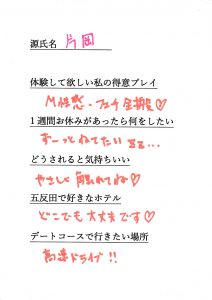 源氏名 片岡
体験して欲しい私の得意プレイ
M性感・フェチ全般♡
1週間お休みがあったら何をしたい
ずーっとねてたい zzz...
どうされると気持ちいい
やさしく触れてね♡
五反田で好きなホテル
どこでも大丈夫です♡
デートコースで行きたい場所
高速ドライブ!!